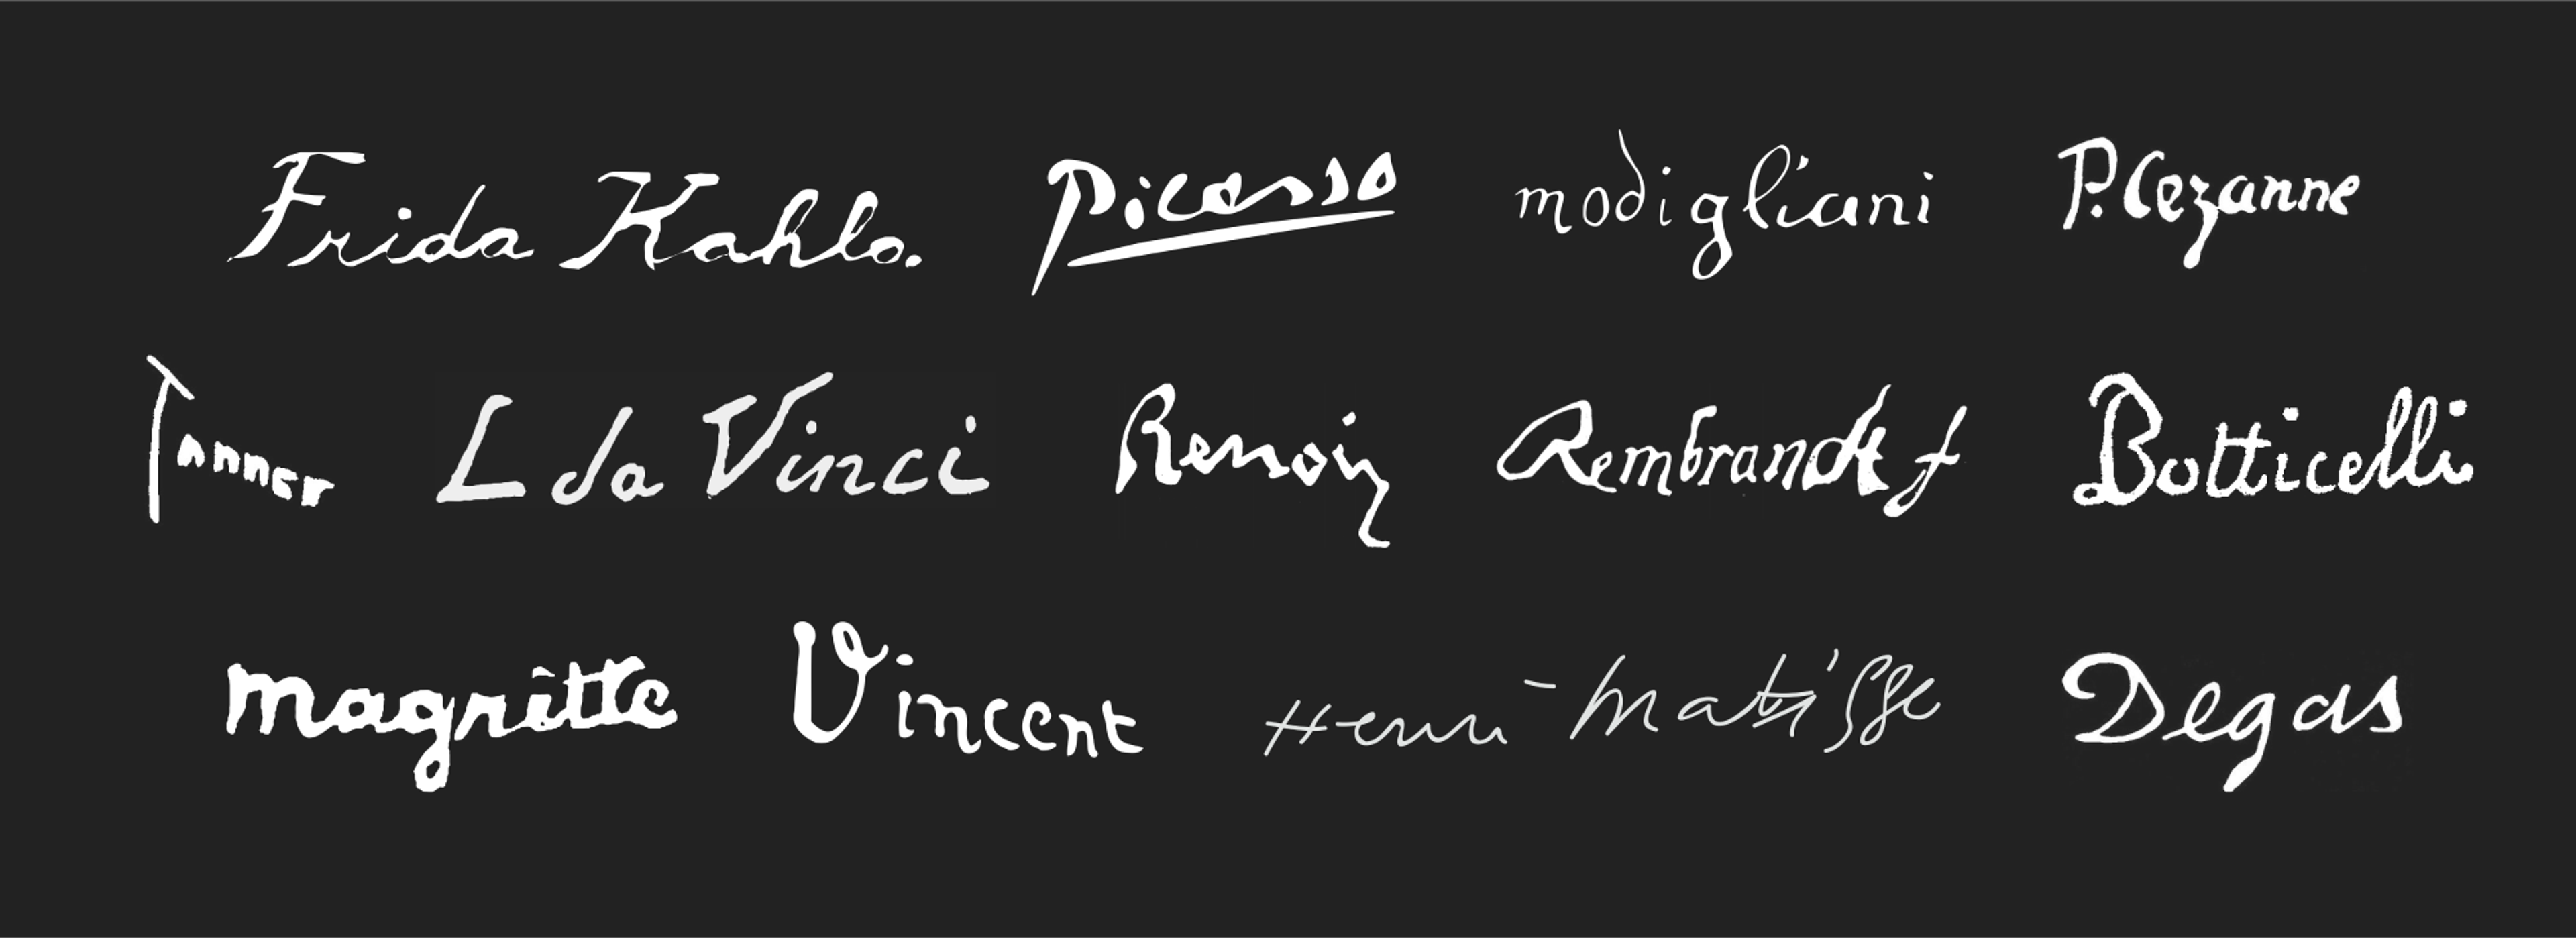 Frida Kahlo. Picasso modigliani P. Cezanne
Tanner L da Vinci Renoir Rembrandt f Botticelli
magritte Vincent Henri-Matisse Degas